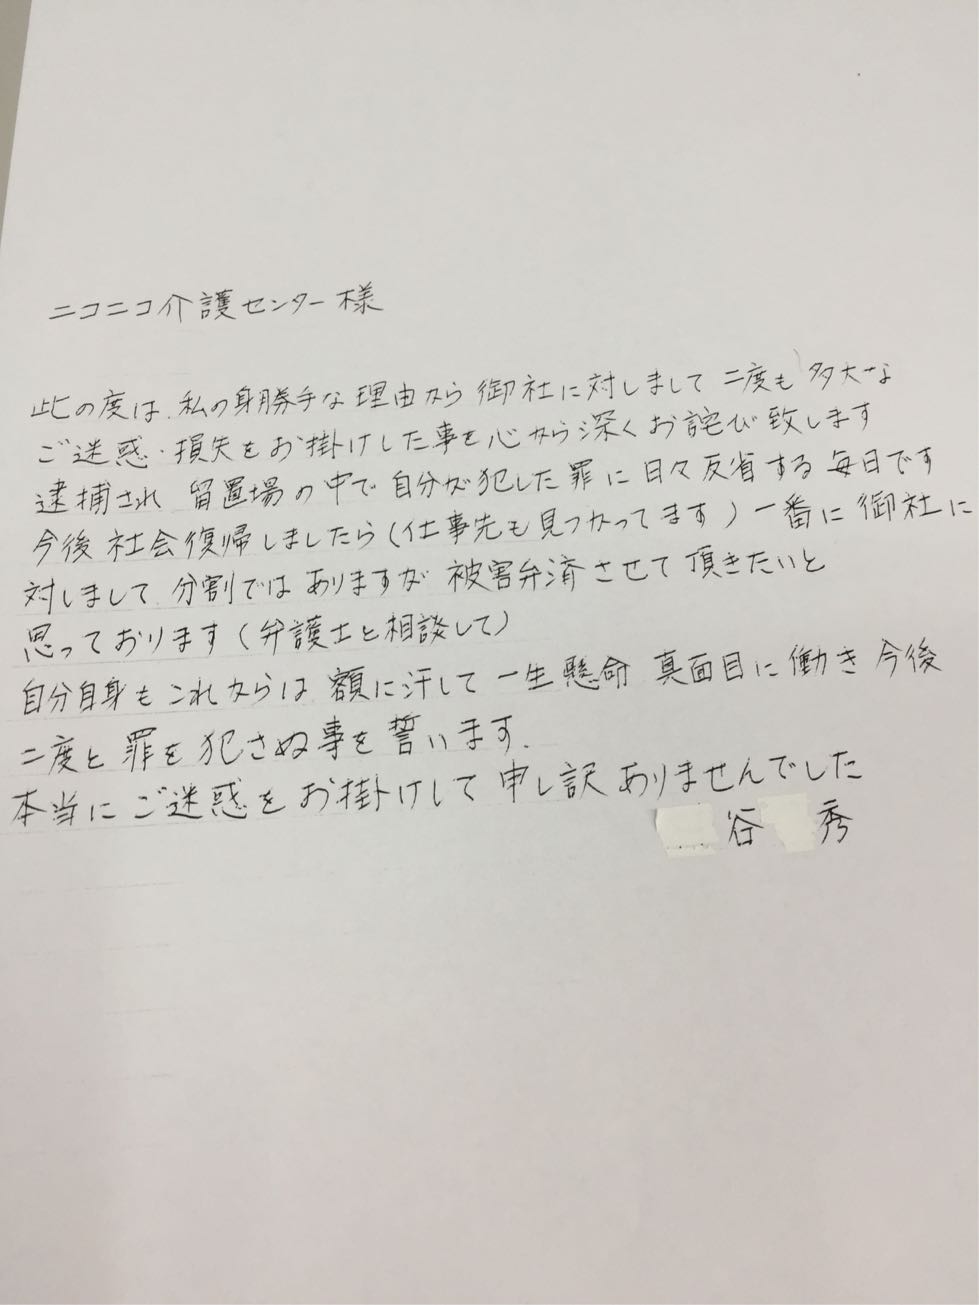 ニコニコ介護センター様
此の度は、私の身勝手な理由から御社に対しまして二度も多大な
ご迷惑・損失をお掛けした事を心から深くお詫び致します
逮捕され留置場の中で自分が犯した罪に日々反省する毎日です
今後社会復帰しましたら(仕事先も見つかってます)一番に御社に
対しまして、分割ではありますが被害弁済させて頂きたいと
思っております(弁護士と相談して)
自分自身もこれからは額に汗して一生懸命真面目に働き今後
二度と罪を犯さぬ事を誓います.
本当にご迷惑をお掛けして申し訳ありませんでした
谷 秀